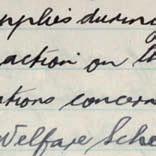 mphies during
action on th
ations concern
Welfare Sche